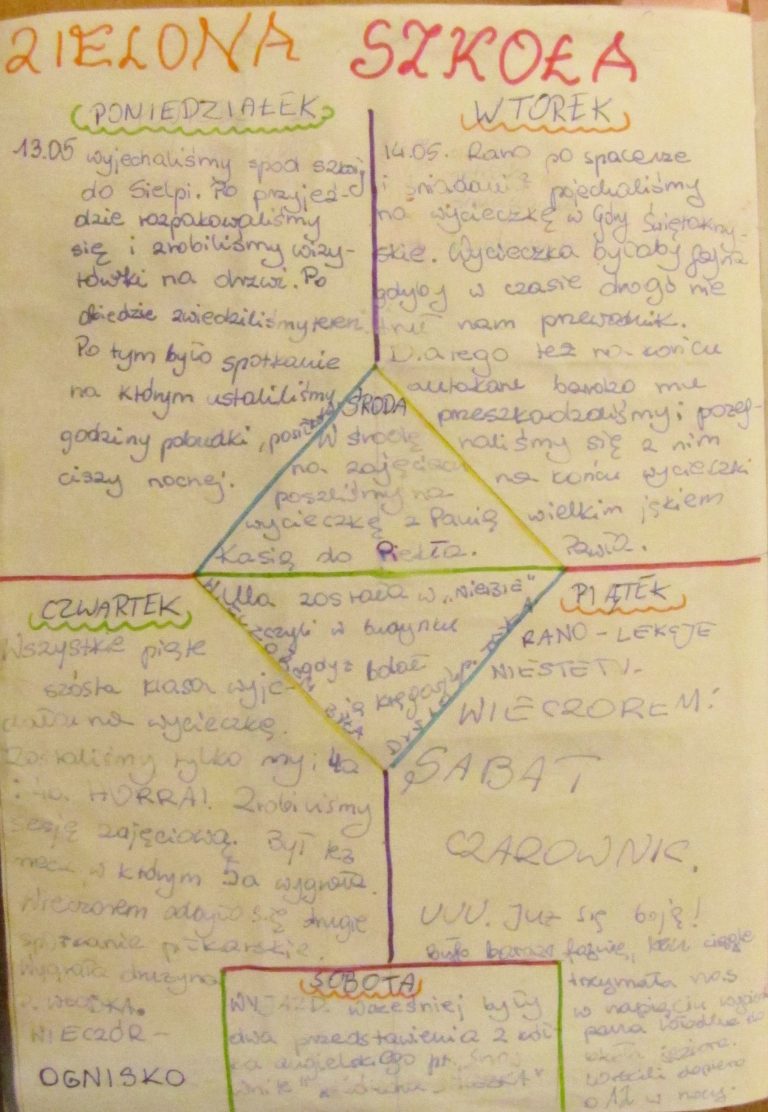 ZIELONA SZKOŁA
PONIEDZIAŁEK
13.05 wyjechaliśmy spod szkoły
do Sielpi. Po przyjeź-
dzie rozpakowaliśmy
się i zrobiliśmy wizy-
tówki na drzwi. Po
obiedzie zwiedziliśmy teren.
Po tym było spotkanie
na którym ustaliliśmy
godziny pobudki,
ciszy nocnej.
WTOREK
14.05. Rano po spacerze
i śniadaniu pojechaliśmy
na wycieczkę w Góry Świętokrzy-
skie. Wycieczka byłaby fajna
gdyby w czasie drogi nie
nam przewodnik.
Dlatego też na końcu
autokaru bardzo mu
przeszkadzaliśmy i pożeg-
naliśmy się z nim
na końcu wycieczki
wielkim jękiem
Pawła.
ŚRODA
W środę
na zajęciach
poszliśmy na
wycieczkę z Panią
Kasią do Piekła.
została w „Niebie"
czyli w budynku
gdyż bolał
ją kręgosłup.
CZWARTEK
Wszystkie piąte
szósta klasa wyje-
chała na wycieczkę.
Zostaliśmy tylko my i 4a
i 4b. HURRA! Zrobiliśmy
sesję zajęciową. Był też
mecz w którym 5a wygrała.
Wieczorem odbyło się drugie
spotkanie piłkarskie.
Wygrała drużyna
WIECZÓR -
OGNISKO
PIĄTEK
RANO - LEKCJE
NIESTETY.
WIECZOREM:
SABAT
CZAROWNIC.
UUU. Już się boję!
Było bardzo fajnie, ciągle
trzymała nas
w napięciu
pana
jeziora.
Wrócili dopiero
o 12 w nocy.
SOBOTA
WYJAZD. Wcześniej były
dwa przedstawienia z kół-
ka angielskiego pt.